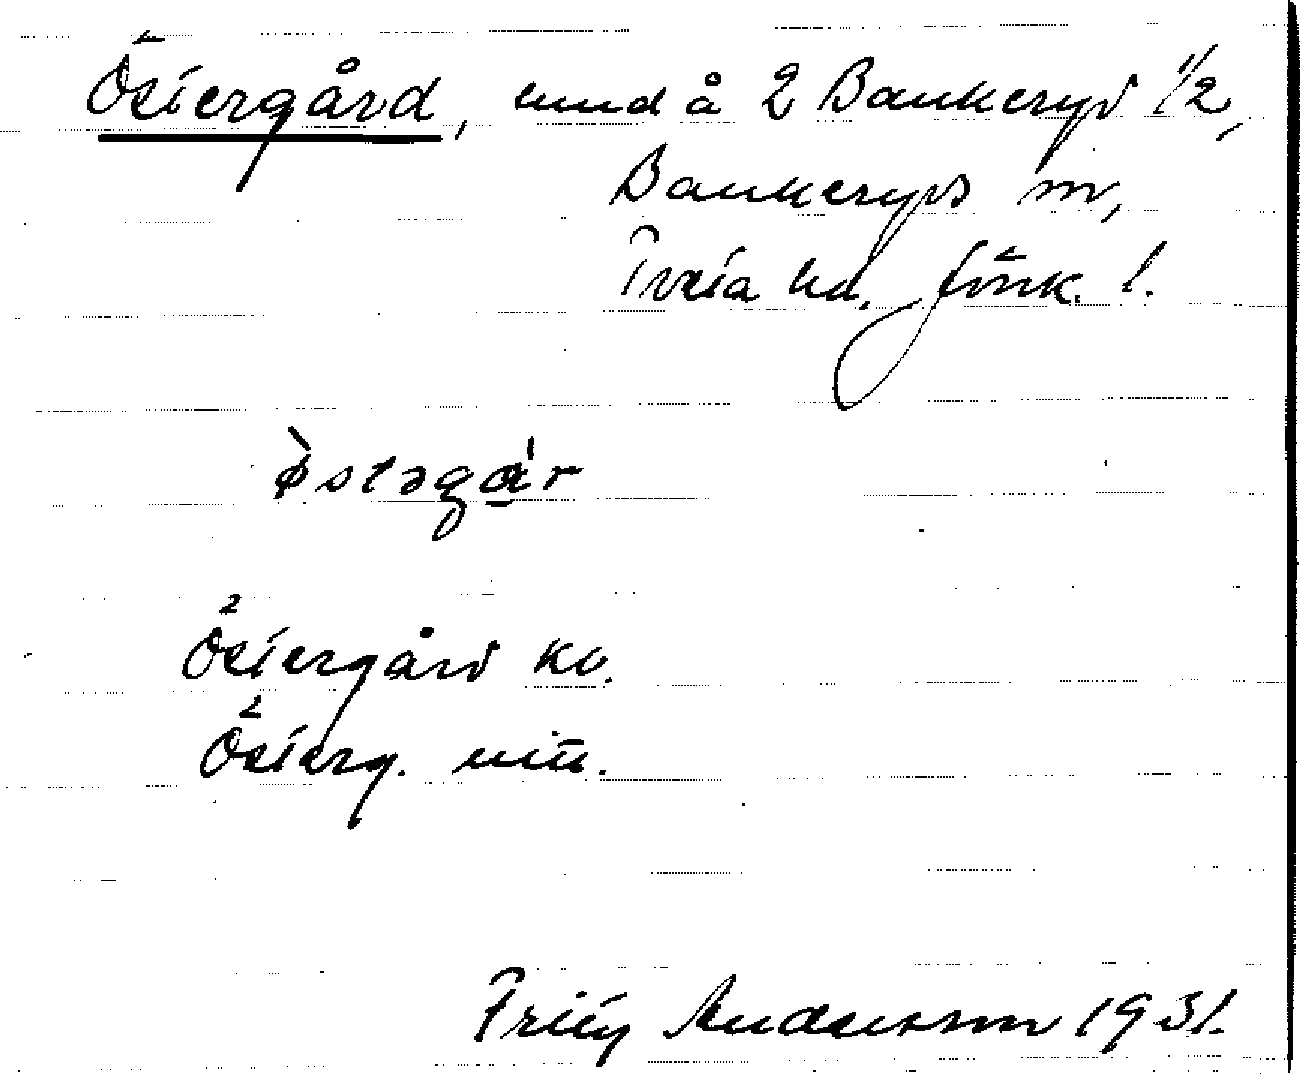 Östergård, und å 2 Bankeryd 1/2,
Bankeryds sn,
Tveta hd. Jönk. l.
østəgár
Östergård kv.
Österg. utt.
Andersson 1931.